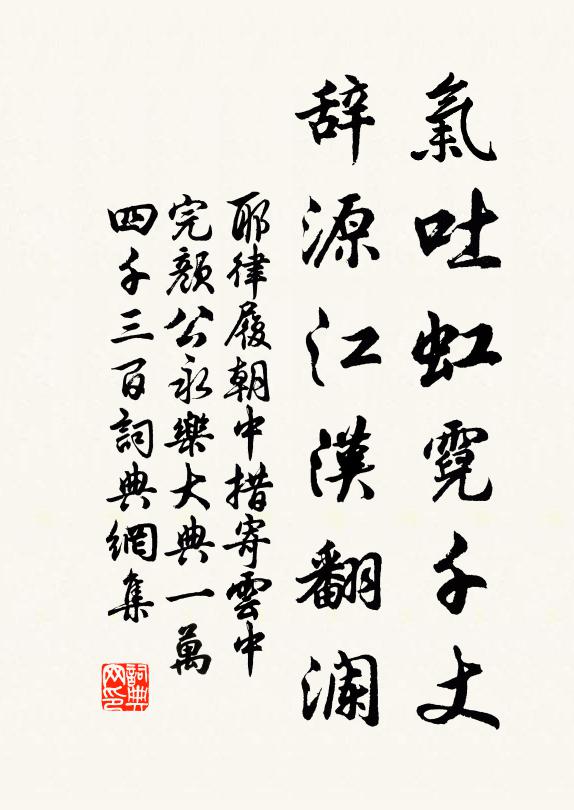 氣吐虹霓千丈
辞源江漢翻澜
耶律履朝中措寄雲中
完顏公永樂大典一萬
四千三百詞典網集
詞典网印